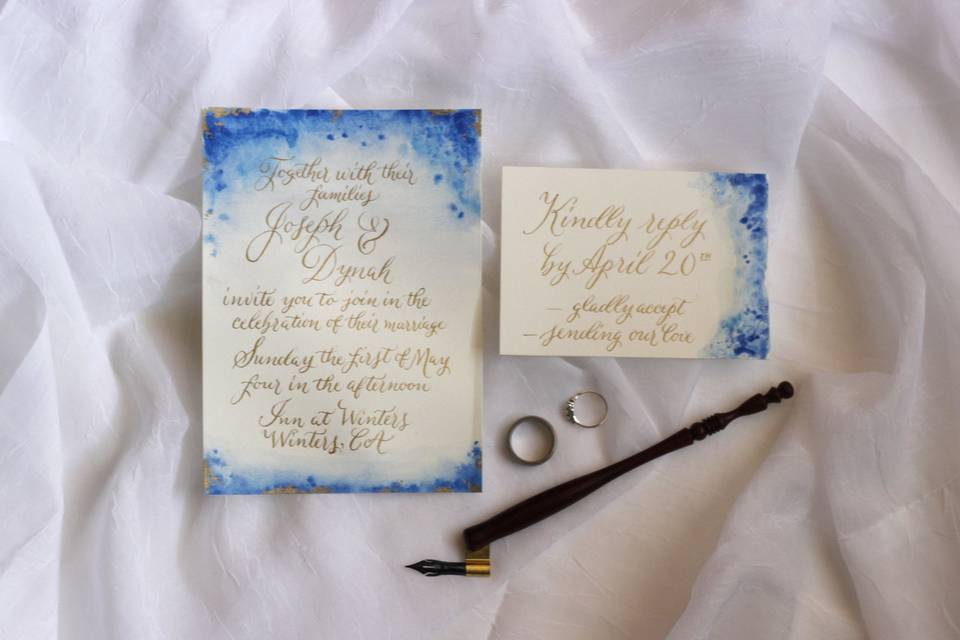 Together with their
families
Joseph &
Dynah
invite you to join in the
celebration of their marriage
Sunday the first of May
four in the afternoon
Inn at Winters
Winters, CA
Kindly reply
by April 20TH
— gladly accept
— sending our love